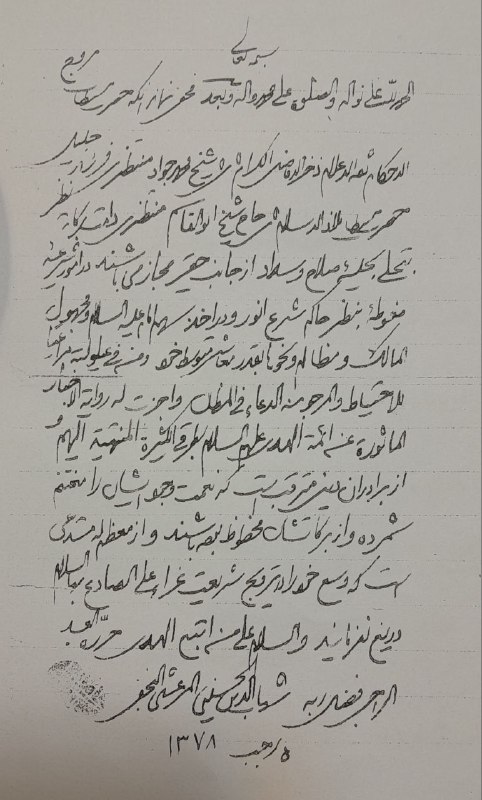 بسمه تعالی
الحمدلله علی نواله والصلوة علی محمد واله وبعد مخفی نماند اینکه حضرت مستطاب مروج
الاحکام ثقة الاعلام ذخر الافاضل الکرام آقای شیخ محمد جواد منتظری فرزند جلیل
حضرت مستطاب ملاذ الاسلام آقای حاج شیخ ابوالقاسم منتظری دامت برکاته
متحلی بحلیه صلاح و سداد از جانب حقیر مجاز می باشند در امور شرعیه
منوطه بنظر حاکم شرع انور و در اخذ سهم امام علیه السلام و مجهول
المالک و مظالم و نحوها بقدر معاش متوسط خود
للاحتیاط والمرجو منه الدعاء فی المظان واجزت له روایة الاخبار
الماثورة عن ائمة الهدی علیهم السلام بطرقی الکثیرة المنتهیة الیهم و
از برادران دینی مترقب است که نعمت وجود ایشان را مغتنم
شمرده و از برکاتشان محظوظ بوده باشند و از معظم له مستدعی
است که وسع خود را در ترویج شریعت غراء علی الصادع بها السلام
دریغ نفرمایند والسلام علی من اتبع الهدی حرره العبد
الراجی فضل ربه شهاب الدین الحسینی المرعشی النجفی
۵ رجب ۱۳۷۸